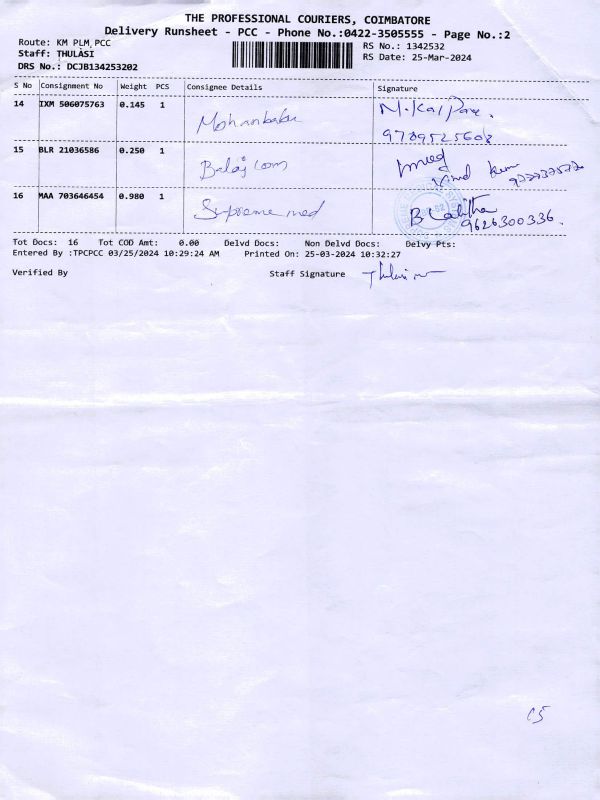 THE PROFESSIONAL COURIERS, COIMBATORE
Delivery Runsheet - PCC - Phone No.:0422-3505555 - Page No.:2
Route: KM PLM,PCC
Staff: THULASI
DRS No.: DCJB134253202
RS No.: 1342532
RS Date: 25-Mar-2024
S No Consignment No Weight PCS Consignee Details Signature
14 IXM 506075763 0.145 1 Mohanbabu
9789525608
15 BLR 21036586 0.250 1 Balaj com
16 MAA 703646454 0.980 1 Supreme med B Lalitha
9626300336.
Tot Docs: 16 Tot COD Amt: 0.00 Delvd Docs: Non Delvd Docs: Delvy Pts:
Entered By :TPCPCC 03/25/2024 10:29:24 AM Printed On: 25-03-2024 10:32:27
Verified By Staff Signature